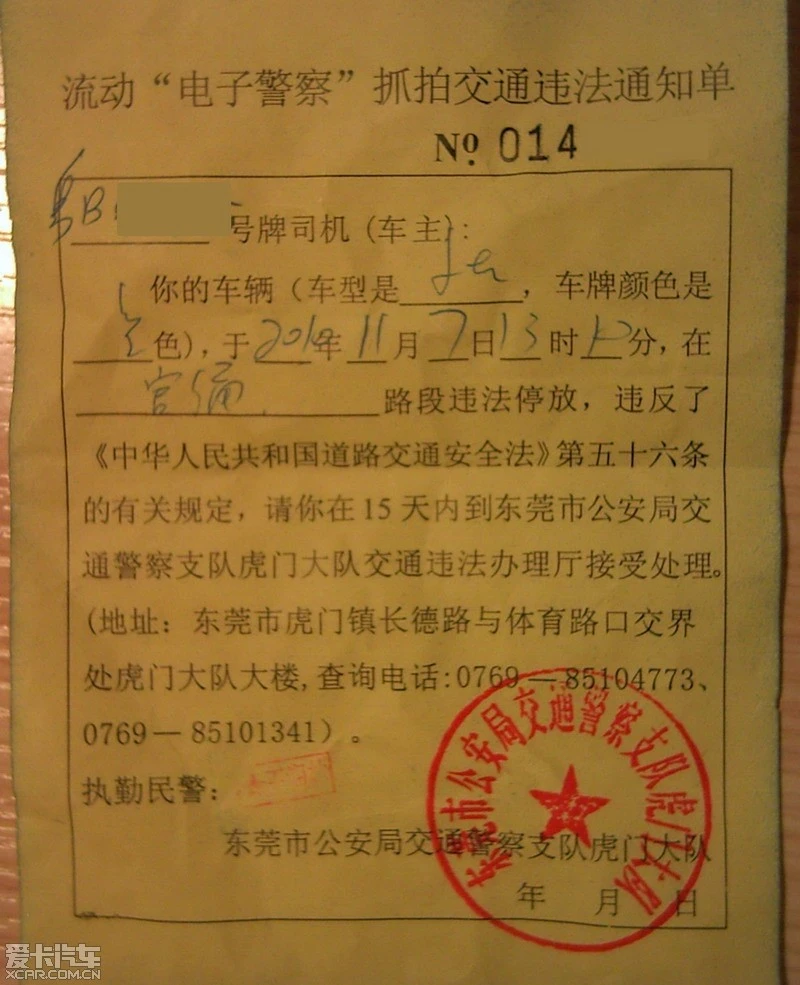 流动“电子警察”抓拍交通违法通知单
№ 014
粤B 号牌司机(车主):
你的车辆(车型是 ,车牌颜色是
色),于2010年11月7日13时 分,在
路段违法停放,违反了
《中华人民共和国道路交通安全法》第五十六条
的有关规定,请你在15天内到东莞市公安局交
通警察支队虎门大队交通违法办理厅接受处理。
(地址:东莞市虎门镇长德路与体育路口交界
处虎门大队大楼,查询电话:0769—85104773、
0769—85101341)。
执勤民警:
东莞市公安局交通警察支队虎门大队
年 月 日
东莞市公安局交通警察支队虎门大队
爱卡汽车
XCAR.COM.CN